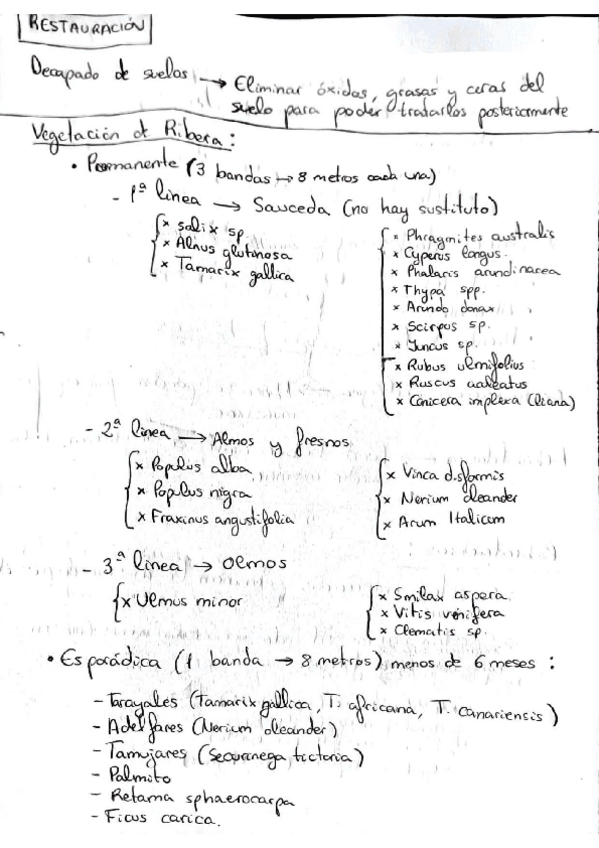 RESTAURACIÓN
Decapado de suelos → Eliminar óxidos, grasas y ceras del
suelo para poder tratarlos posteriormente
Vegetación de Ribera:
• Permanente (3 bandas → 8 metros cada una)
- 1ª línea → Sauceda (no hay sustituto)
x Salix sp.
x Alnus glutinosa
x Tamarix gallica
x Phragmites australis
x Cyperus longus.
x Phalaris arundinacea
x Thypa spp.
x Arundo donax
x Scirpus sp.
x Juncus sp.
x Rubus ulmifolius
x Ruscus aculeatus
x Lonicera implexa (liana)
- 2ª línea → Almos y fresnos
x Populus alba
x Populus nigra
x Fraxinus angustifolia
x Vinca difformis
x Nerium oleander
x Arum Italicum
- 3ª línea → Olmos
x Ulmus minor
x Smilax aspera
x Vitis vinifera
x Clematis sp.
• Esporádica (1 banda → 8 metros) menos de 6 meses:
- Tarayales (Tamarix gallica, T. africana, T. canariensis)
- Adelfares (Nerium oleander)
- Tamujares (Securinega tictoria)
- Palmito
- Retama sphaerocarpa
- Ficus carica.